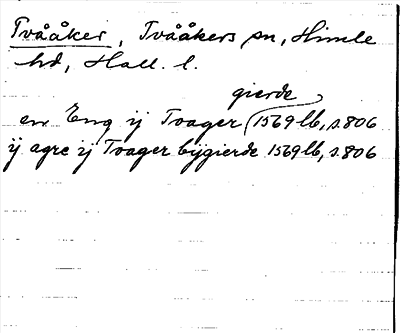 Tvååker, Tvååkers sn, Himle
hd, Hall. l.
gierde
en Eng ij Toager (1569 lb, s. 806
ij agre ij Toager bÿgierde 1569 lb, s. 806